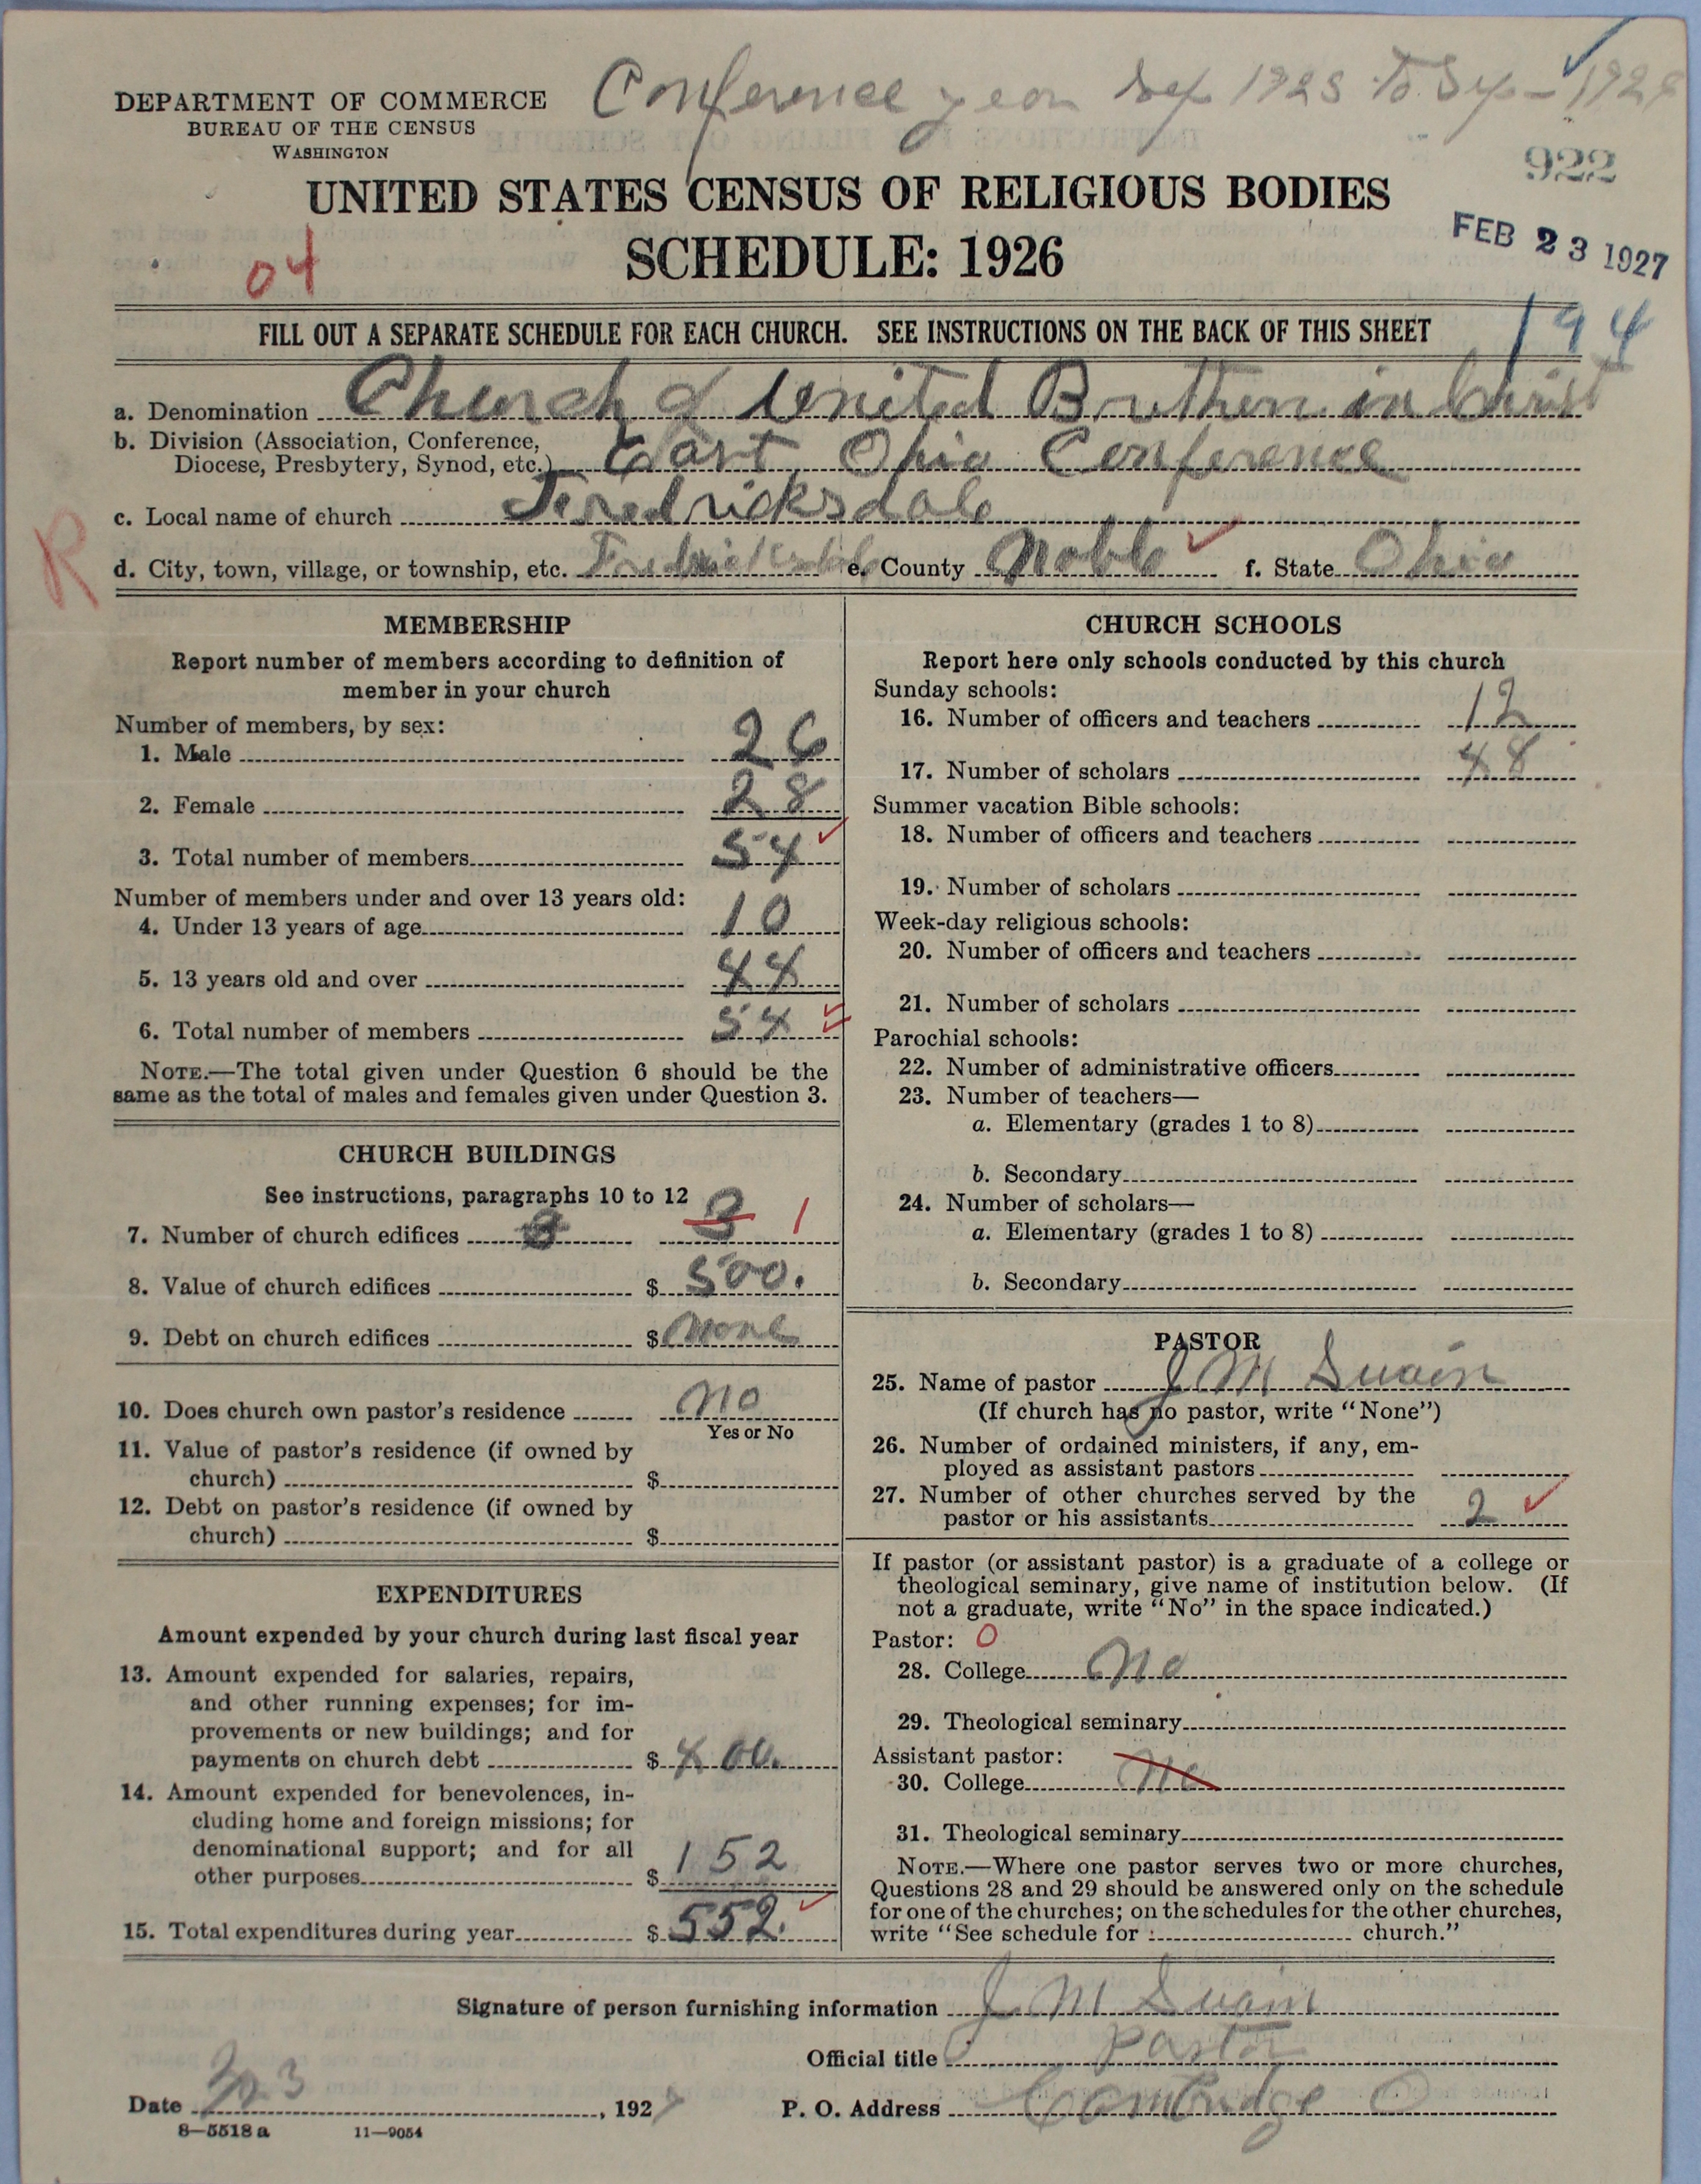 Conference year Sep 1925 to Sep - 1926
DEPARTMENT OF COMMERCE
BUREAU OF THE CENSUS
WASHINGTON
922
UNITED STATES CENSUS OF RELIGIOUS BODIES
SCHEDULE: 1926
FEB 23 1927
04
FILL OUT A SEPARATE SCHEDULE FOR EACH CHURCH. SEE INSTRUCTIONS ON THE BACK OF THIS SHEET
194
a. Denomination Church of United Brethern in Christ
b. Division (Association, Conference,
Diocese, Presbytery, Synod, etc.) East Ohio Conference
c. Local name of church Fredricksdale
R
d. City, town, village, or township, etc. Fredricksdale e. County Noble f. State Ohio
MEMBERSHIP
Report number of members according to definition of
member in your church
Number of members, by sex:
1. Male 26
2. Female 28
3. Total number of members 54
Number of members under and over 13 years old:
4. Under 13 years of age 10
5. 13 years old and over 44
6. Total number of members 54
NOTE.—The total given under Question 6 should be the
same as the total of males and females given under Question 3.
CHURCH BUILDINGS
See instructions, paragraphs 10 to 12
7. Number of church edifices 3 1
8. Value of church edifices $ 500.
9. Debt on church edifices $ None
10. Does church own pastor's residence No
Yes or No
11. Value of pastor's residence (if owned by
church) $
12. Debt on pastor's residence (if owned by
church) $
EXPENDITURES
Amount expended by your church during last fiscal year
13. Amount expended for salaries, repairs,
and other running expenses; for im-
provements or new buildings; and for
payments on church debt $ 400.
14. Amount expended for benevolences, in-
cluding home and foreign missions; for
denominational support; and for all
other purposes $ 152
15. Total expenditures during year $ 552.
CHURCH SCHOOLS
Report here only schools conducted by this church
Sunday schools:
16. Number of officers and teachers 12
17. Number of scholars 48
Summer vacation Bible schools:
18. Number of officers and teachers
19. Number of scholars
Week-day religious schools:
20. Number of officers and teachers
21. Number of scholars
Parochial schools:
22. Number of administrative officers
23. Number of teachers—
a. Elementary (grades 1 to 8)
b. Secondary
24. Number of scholars—
a. Elementary (grades 1 to 8)
b. Secondary
PASTOR
25. Name of pastor J M Swain
(If church has no pastor, write "None")
26. Number of ordained ministers, if any, em-
ployed as assistant pastors
27. Number of other churches served by the
pastor or his assistants 2
If pastor (or assistant pastor) is a graduate of a college or
theological seminary, give name of institution below. (If
not a graduate, write "No" in the space indicated.)
Pastor: O
28. College No
29. Theological seminary
Assistant pastor:
30. College No
31. Theological seminary
NOTE.—Where one pastor serves two or more churches,
Questions 28 and 29 should be answered only on the schedule
for one of the churches; on the schedules for the other churches,
write "See schedule for church."
Signature of person furnishing information J M Swain
Official title Pastor
Date 3, 1927
P. O. Address Cambridge O
8—5518 a 11—9054